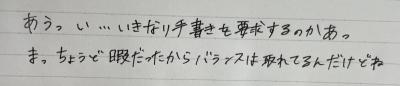 あうっ い…いきなり手書きを要求するのかあっ
まっちょうど暇だったからバランスは取れてるんだけどね